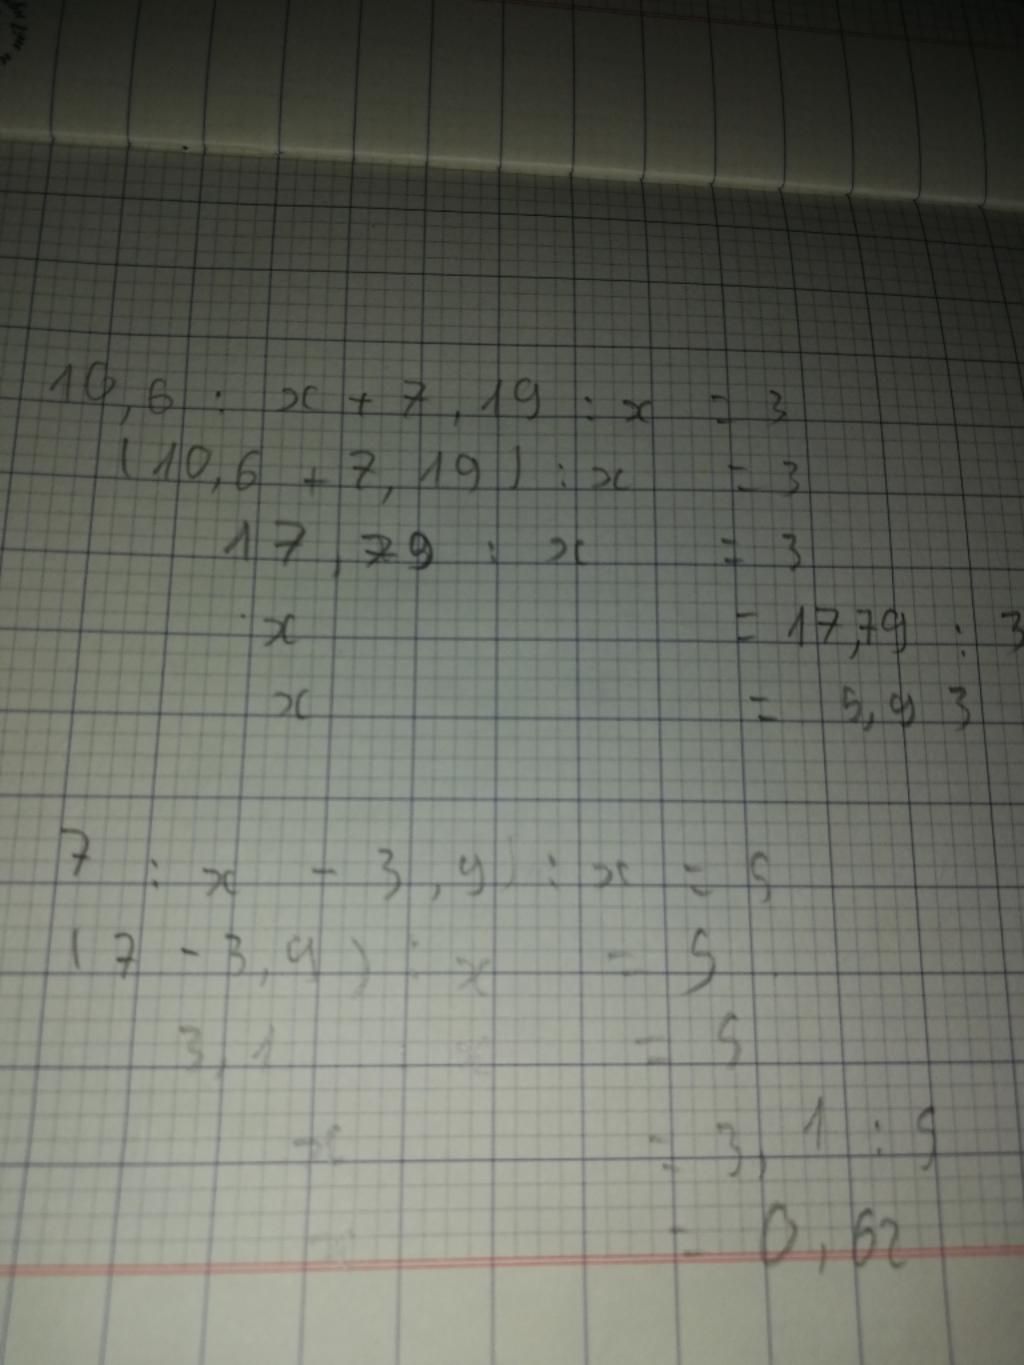 10,6 : x + 7,19 : x = 3
(10,6 + 7,19) : x = 3
17,79 : x = 3
x = 17,79 : 3
x = 5,93
7 : x - 3,9 : x = 5
(7 - 3,9) : x = 5
3,1 x = 5
x = 3,1 : 5
= 0,62